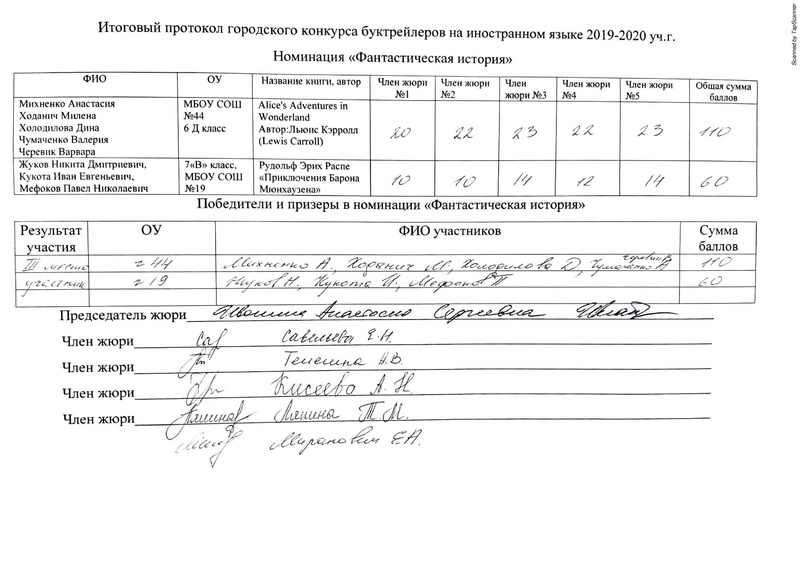 Scanned by TapScanner
Итоговый протокол городского конкурса буктрейлеров на иностранном языке 2019-2020 уч.г.
Номинация «Фантастическая история»
ФИО ОУ Название книги, автор Член жюри №1 Член жюри №2 Член жюри №3 Член жюри №4 Член жюри №5 Общая сумма баллов
Михненко Анастасия МБОУ СОШ Alice's Adventures in
Ходанич Милена №44 Wonderland
Холодилова Дина 6 Д класс Автор:Льюис Кэрролл 20 22 23 22 23 110
Чумаченко Валерия (Lewis Carroll)
Черевик Варвара
Жуков Никита Дмитриевич, 7«В» класс, Рудольф Эрих Распе
Кукота Иван Евгеньевич, МБОУ СОШ «Приключения Барона 10 10 14 12 14 60
Мефоков Павел Николаевич №19 Мюнхаузена»
Победители и призеры в номинации «Фантастическая история»
Результат участия ОУ ФИО участников Сумма баллов
III место 44 Михненко А., Ходанич М., Холодилова Д, Чумаченко Черевик В 110
участник 19 Жуков Н, Кукота И., Мефоков П 60
Председатель жюри Анастасия Сергеевна
Член жюри Савельева Е.Н.
Член жюри Телегина А.В.
Член жюри Кисеева А.Н.
Член жюри Лянина Т.М.
Миранович Е.А.